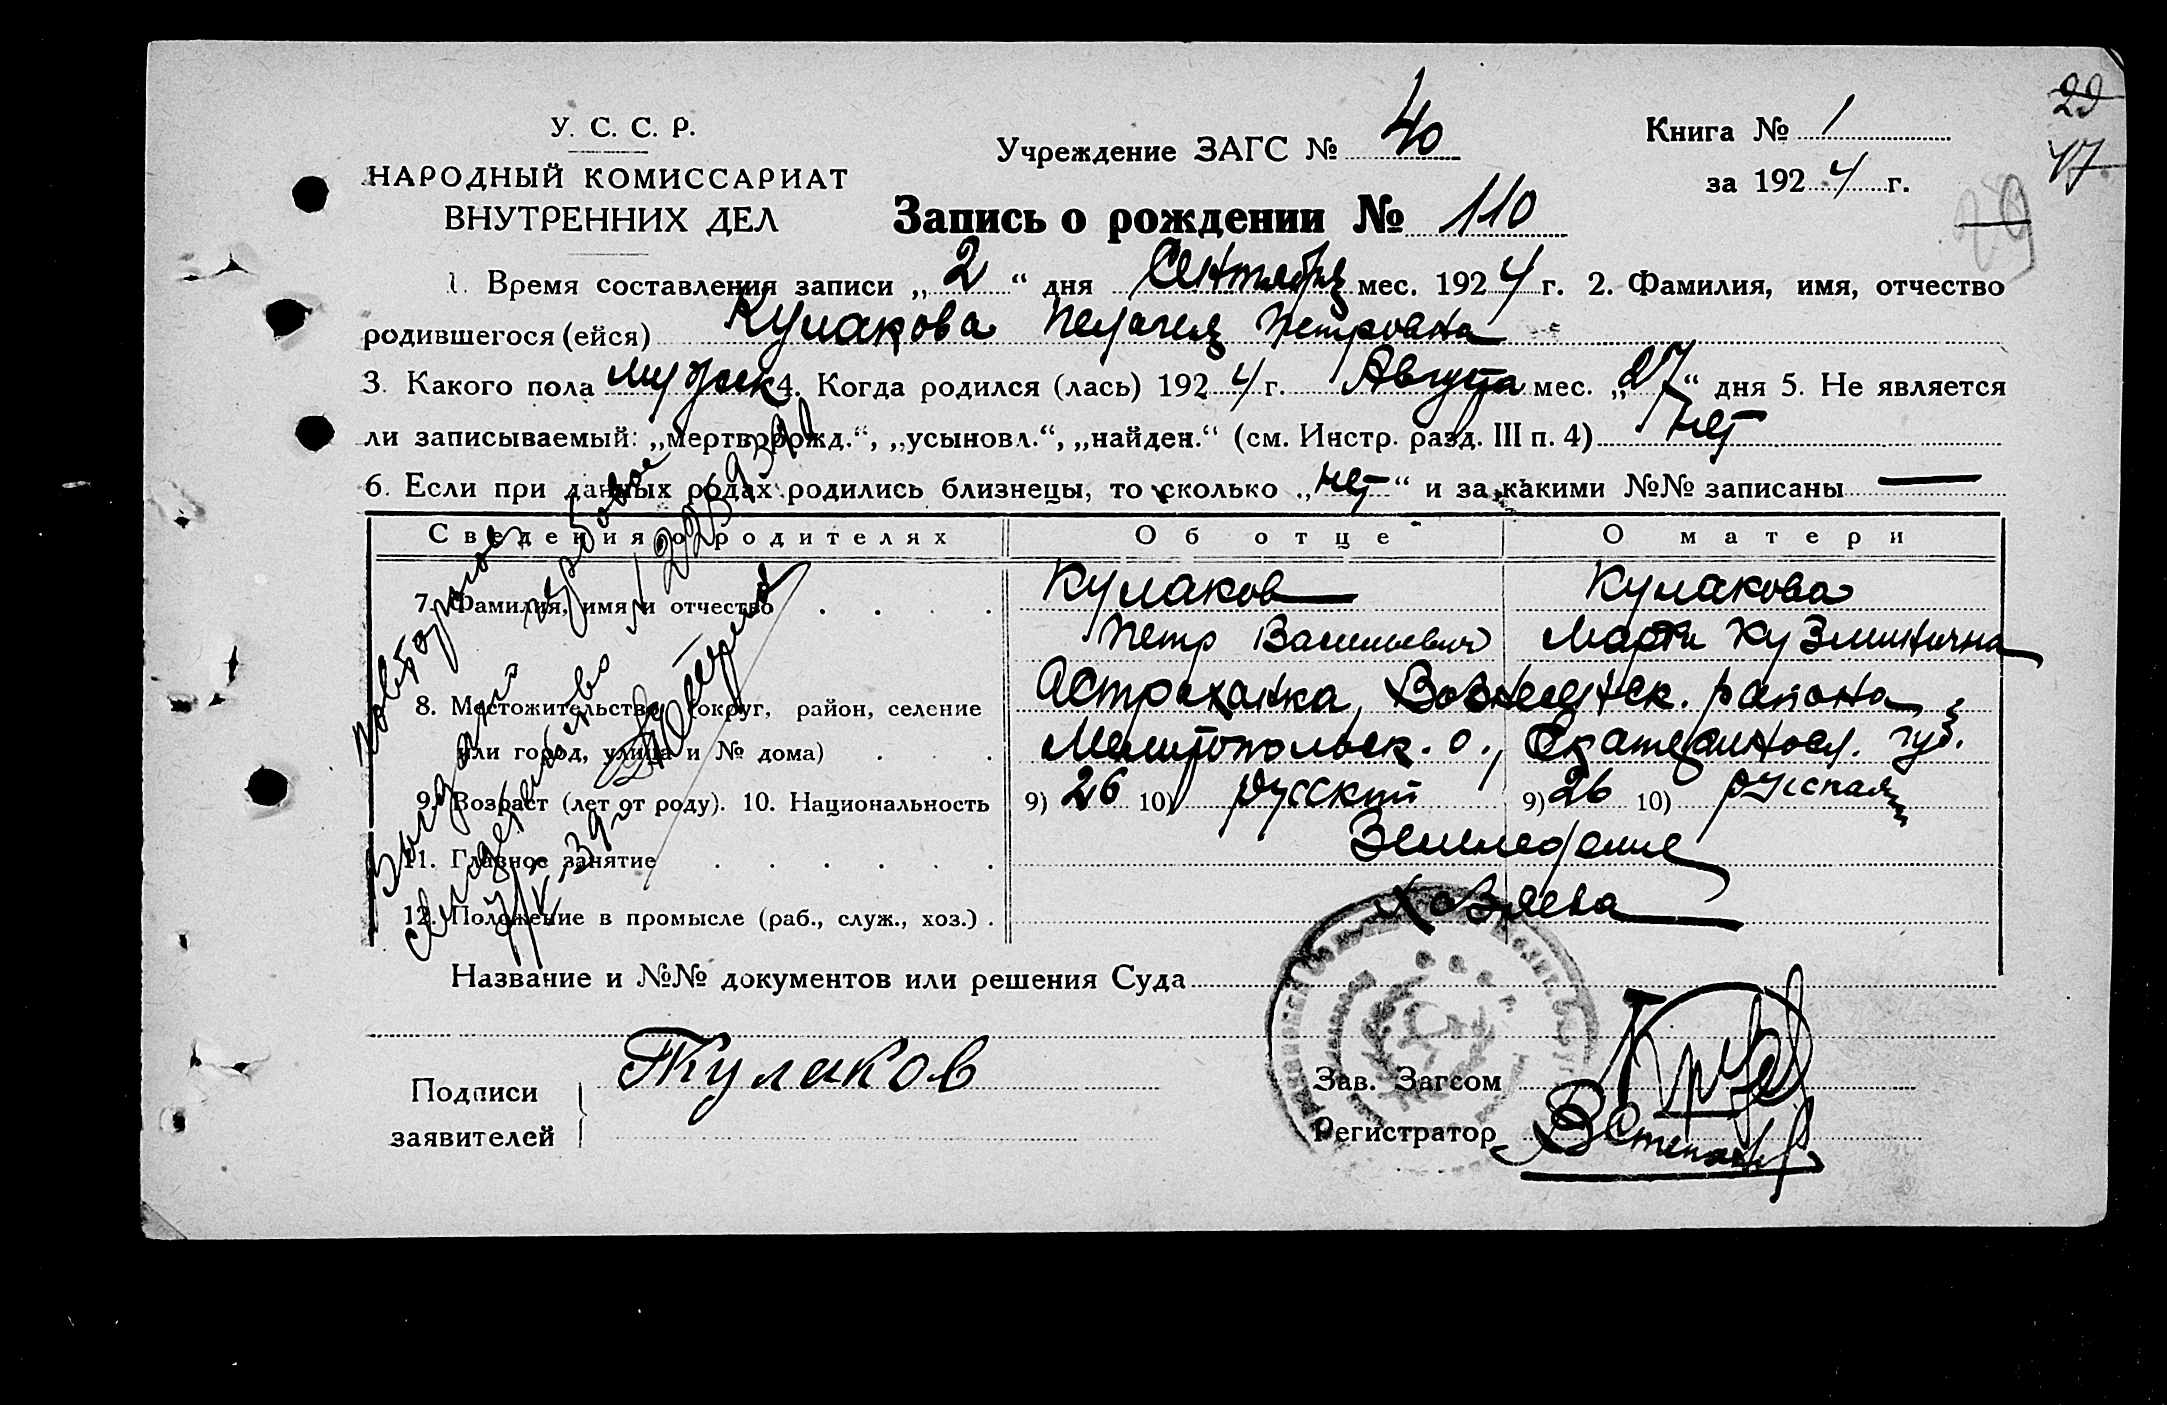 29
47
29
У. С. С. Р.
НАРОДНЫЙ КОМИССАРИАТ
ВНУТРЕННИХ ДЕЛ
Учреждение ЗАГС № 40
Книга № 1
за 1924 г.
Запись о рождении № 110
1. Время составления записи „ 2 “ дня Сентября мес. 1924 г. 2. Фамилия, имя, отчество
родившегося (ейся) Кулакова Пелагея Петровна
3. Какого пола мужск 4. Когда родился (лась) 1924 г. Августа мес. „27“ дня 5. Не является
ли записываемый: „мертворожд.“, „усыновл.“, „найден.“ (см. Инстр. разд. III п. 4) нет
6. Если при данных родах родились близнецы, то сколько „нет“ и за какими №№ записаны —
Сведения о родителях Об отце О матери
7. Фамилия, имя и отчество Кулаков Кулакова
Петр Васильевич Кузминична
8. Местожительство (округ, район, селение Астраханка, Вознесенск. района
или город, улица и № дома) Мелитопольск. о., Екатериносл. губ.
9. Возраст (лет от роду). 10. Национальность 9) 26 10) русский 9) 26 10) русская
11. Главное занятие Земледелие
12. Положение в промысле (раб., служ., хоз.) Хозяева
Название и №№ документов или решения Суда
Подписи
заявителей
ПКулаков
Зав. Загсом
Регистратор ВСтепан
Выдано повторное
свидетельство гербовое